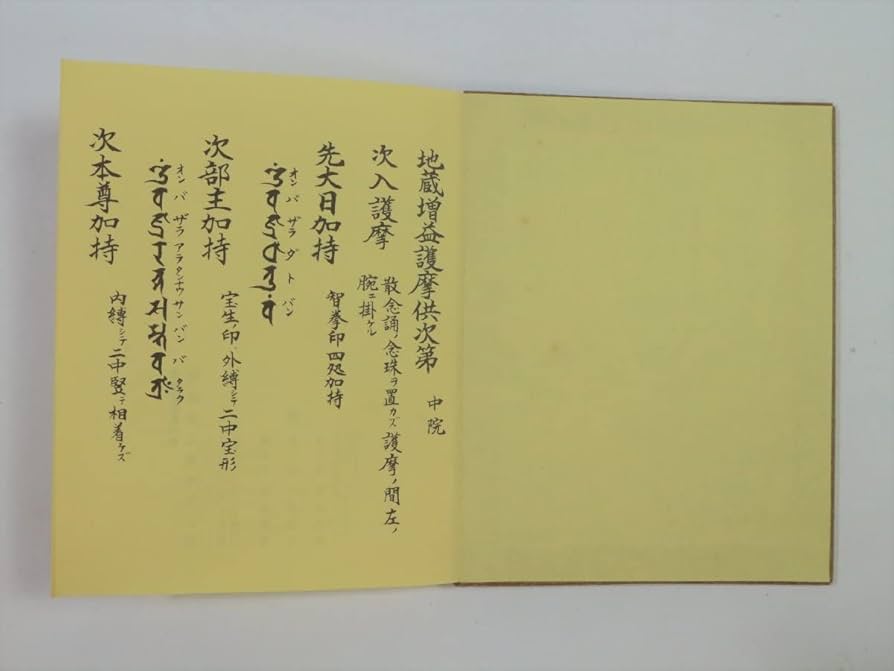 地蔵増益護摩供次第　中院
次入護摩　散念誦ノ念珠ヲ置カズ護摩ノ間左ノ
腕ニ掛ケル
先大日加持　智拳印四処加持
オン バ ザラ ダ ト バン
次部主加持　宝生ノ印、外縛シテ二中宝形
オン バ ザラ アラタンナウ サン バン バ タラク
次本尊加持　内縛シテ二中竪テ相着ケズ